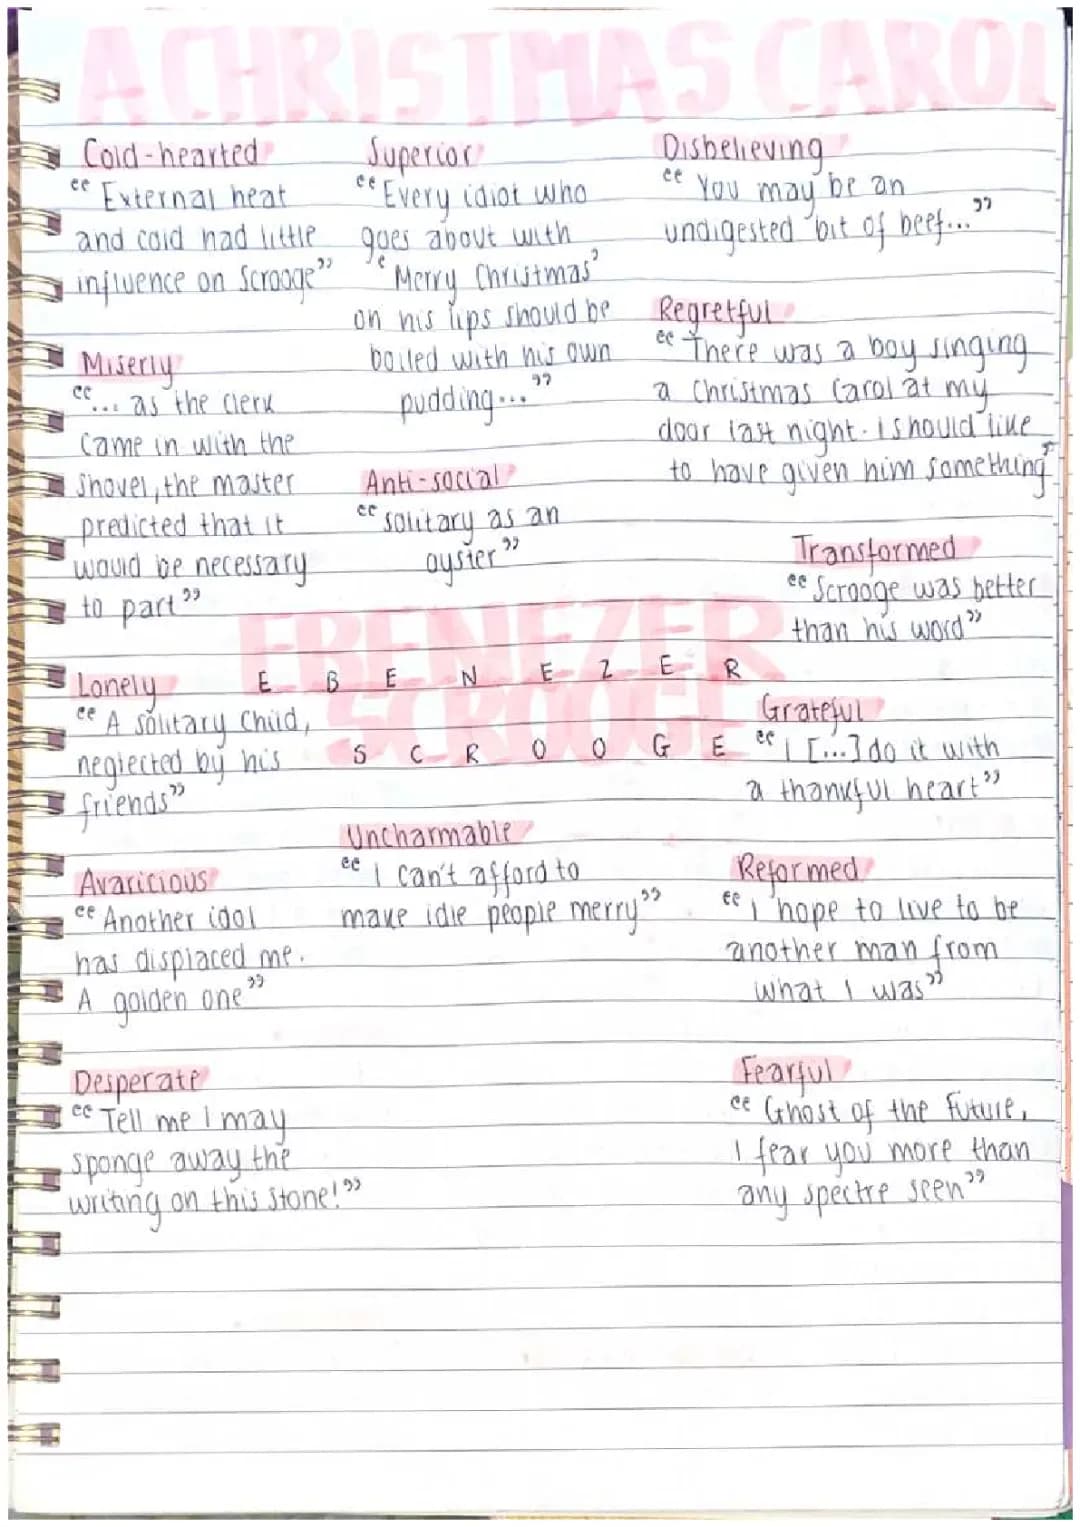 A CHRISTMAS CAROL
Cold-hearted
“External heat
and cold had little
influence on Scrooge”
Miserly
“... as the clerk
came in with the
shovel, the master
predicted that it
would be necessary
to part”
Superior
“Every idiot who
goes about with
‘Merry Christmas’
on his lips should be
boiled with his own
pudding...”
Anti-social
“solitary as an
oyster”
Disbelieving
“You may be an
undigested bit of beef...”
Regretful
“There was a boy singing
a Christmas Carol at my
door last night. I should like
to have given him something”
Transformed
“Scrooge was better
than his word”
EBENEZER
SCROOGE
E B E N E Z E R
S C R O O G E
Lonely
“A solitary child,
neglected by his
friends”
Grateful
“I [...] do it with
a thankful heart”
Avaricious
“Another idol
has displaced me.
A golden one”
Uncharmable
“I can't afford to
make idle people merry”
Reformed
“I hope to live to be
another man from
what I was”
Desperate
“Tell me I may
sponge away the
writing on this stone!”
Fearful
“Ghost of the Future,
I fear you more than
any spectre seen”